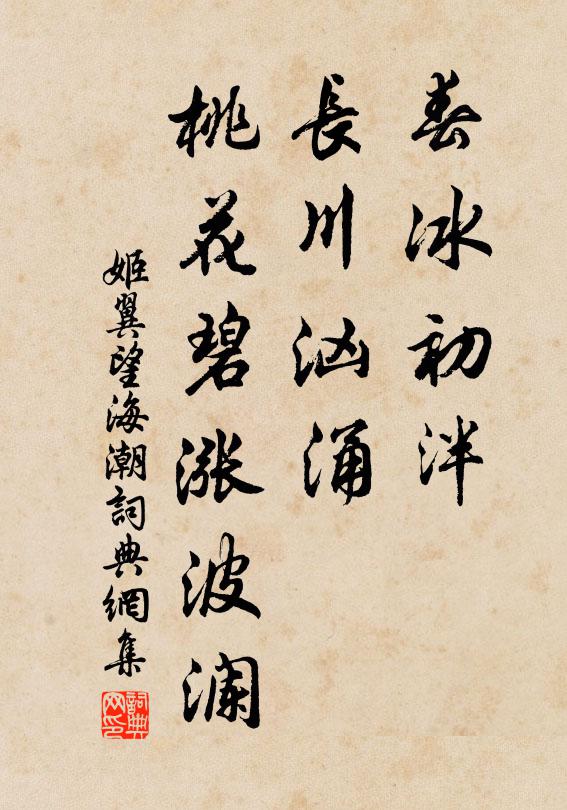 春冰初泮
長川汹涌
桃花碧漲波瀾
姬翼望海潮詞典網集
詞典网印